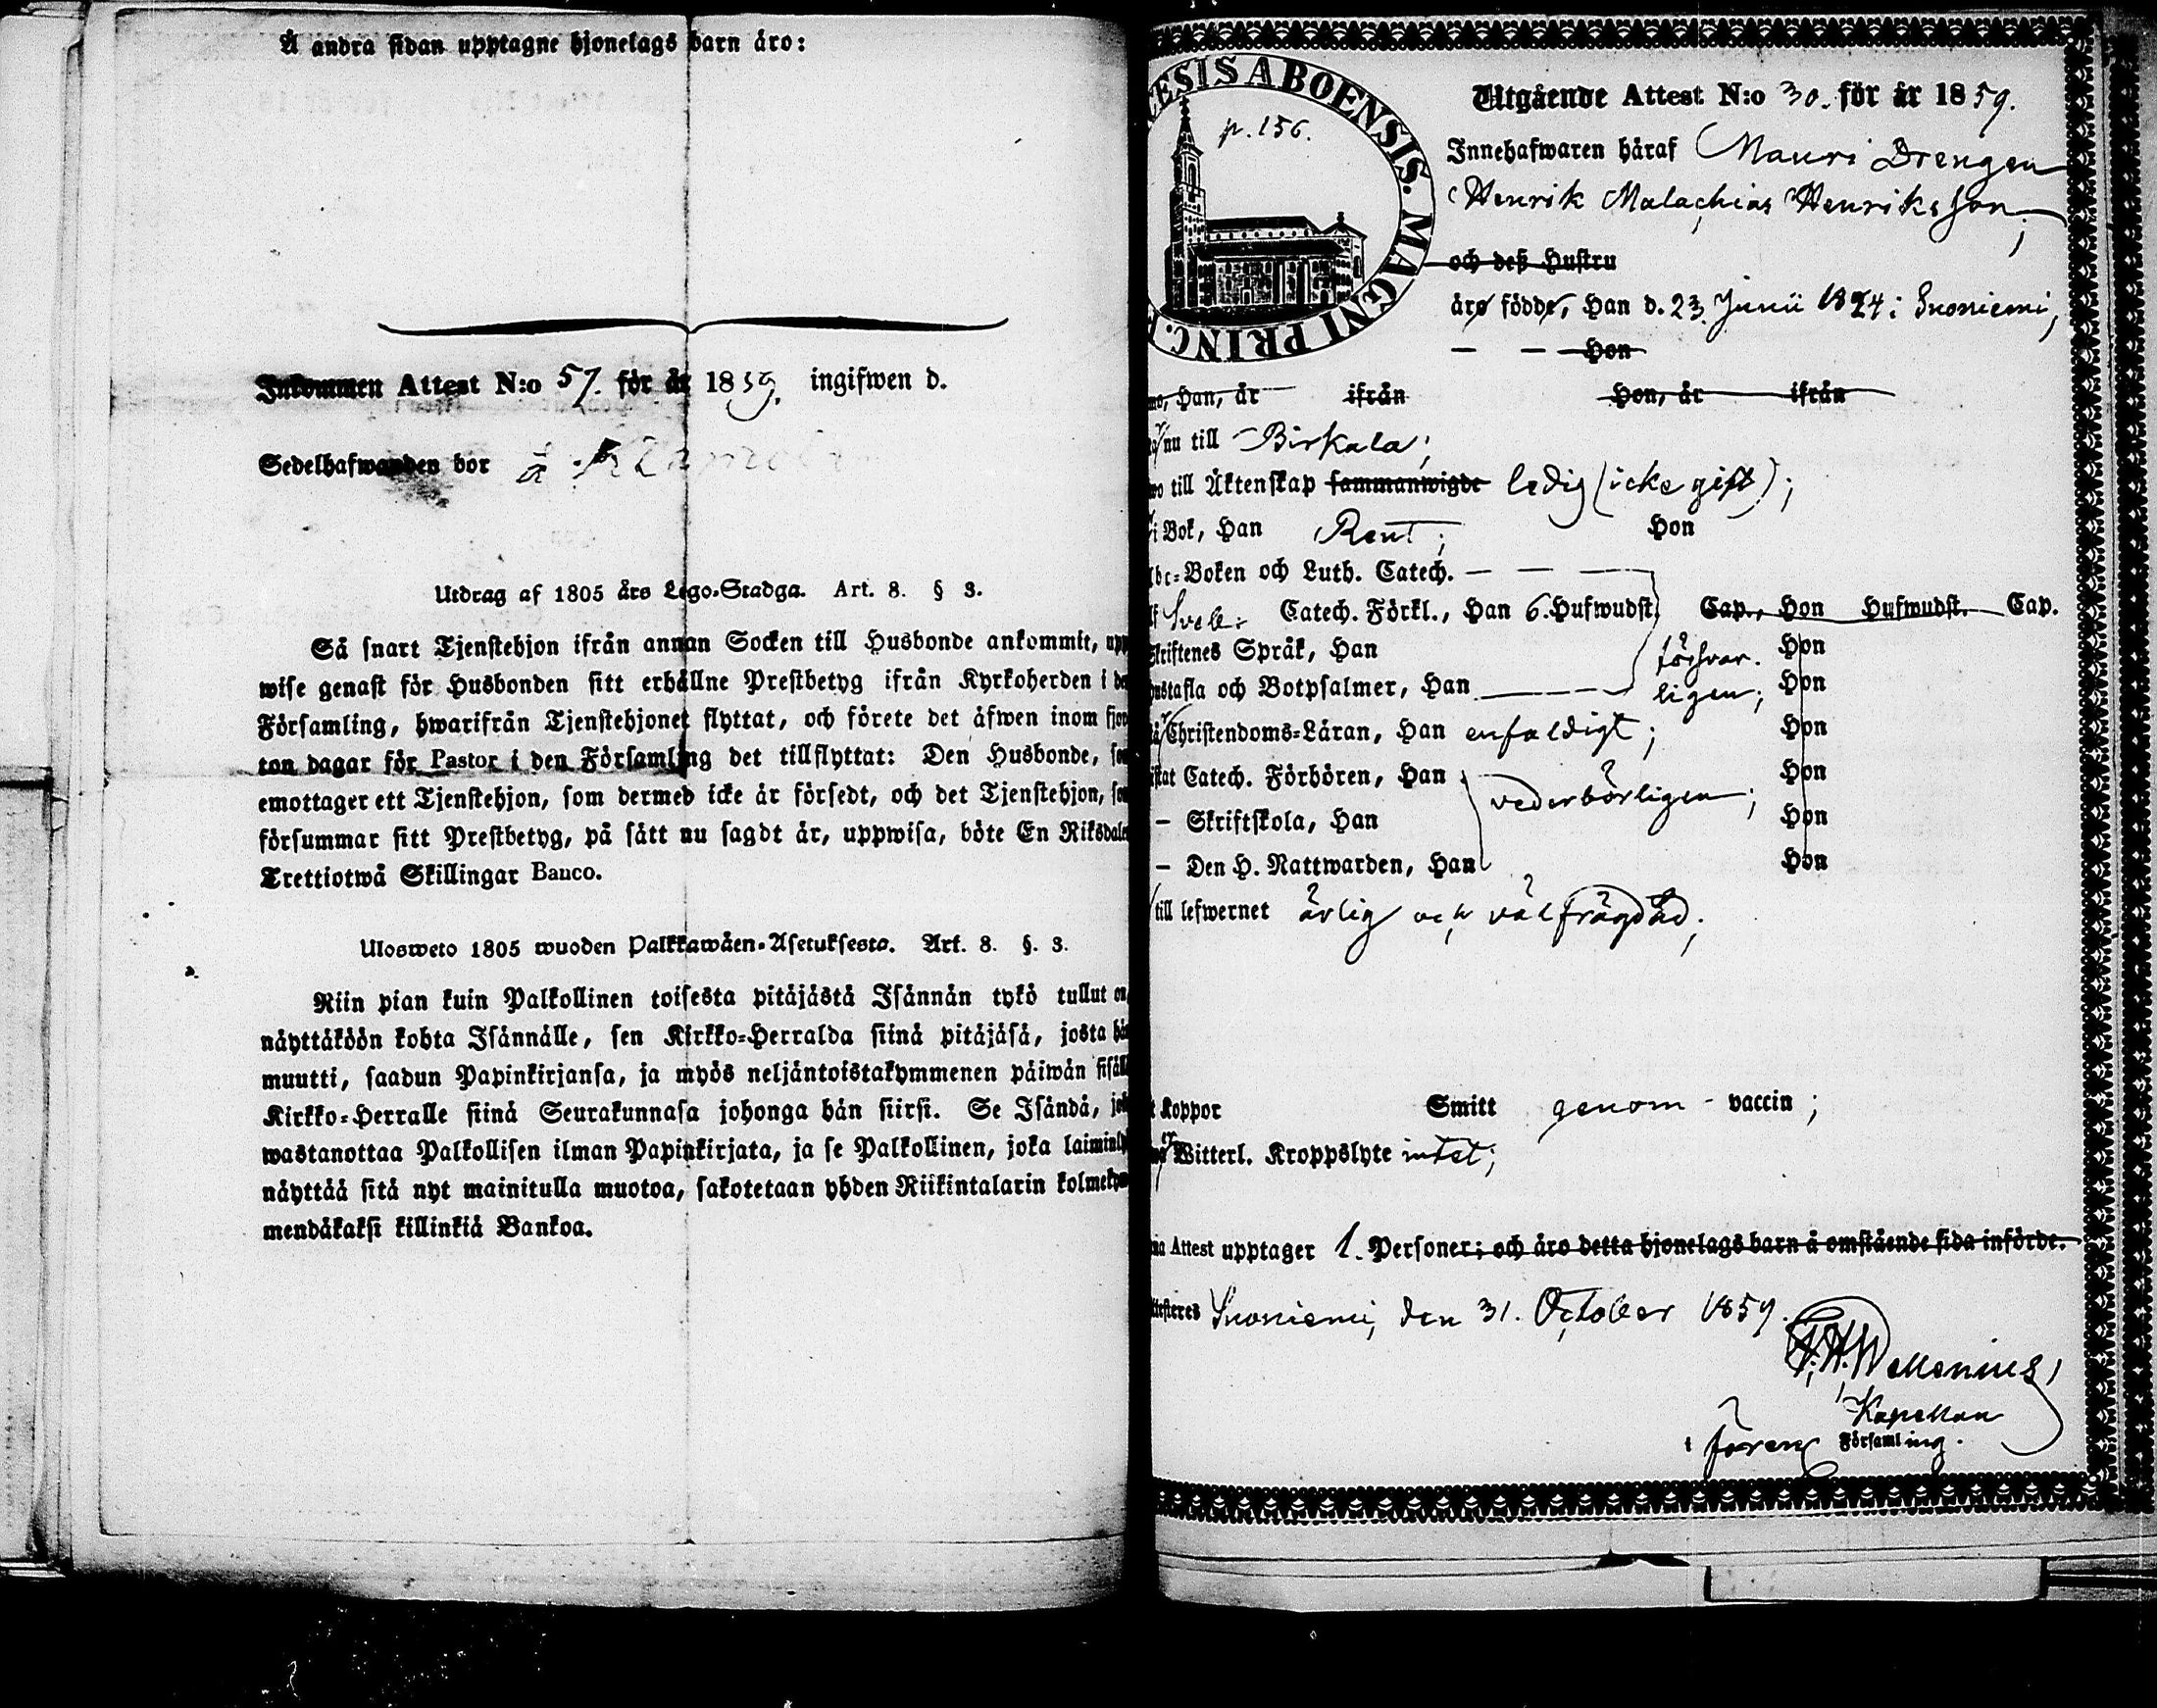 Å andra sidan upptagne hjonelags barn äro:
Inkommen Attest N:o 57. för år 1859. ingifwen d.
Sedelhafwanden bor å
Utdrag af 1805 års Lego-Stadga. Art. 8. § 3.
Så snart Tjenstehjon ifrån annan Socken till Husbonde ankommit, upp
wise genast för Husbonden sitt erhållne Prestbetyg ifrån Kyrkoherden i den
Församling, hwarifrån Tjenstehjonet flyttat, och förete det äfwen inom fjor
ton dagar för Pastor i den Församling det tillflyttat: Den Husbonde, som
emottager ett Tjenstehjon, som dermed icke är försedt, och det Tjenstehjon, som
försummar sitt Prestbetyg, på sätt nu sagdt är, uppwisa, böte En Riksdaler
Trettiotwå Skillingar Banco.
Ulosweto 1805 wuoden Palkkawäen-Asetuksesta. Art. 8. §. 3.
Niin pian kuin Palkollinen toisesta pitäjästä Isännän tykö tullut on,
näyttäköön kohta Isännälle, sen Kirkko-Herralda siinä pitäjäsä, josta hän
muutti, saadun Papinkirjansa, ja myös neljäntoistakymmenen päiwän sisäll
Kirkko-Herralle siinä Seurakunnasa johonga hän siirsi. Se Isändä, jok
wastanottaa Palkollisen ilman Papinkirjata, ja se Palkollinen, joka laiminly
näyttää sitä nyt mainitulla muotoa, sakotetaan yhden Riikintalarin kolmekym
mendäkaksi killinkiä Bankoa.
ESIS ABOENSIS. MAGNI PRINC.
p. 156.
Utgående Attest N:o 30. för år 1859.
Innehafwaren häraf Mauri Drengen
Henrik Malachias Henriksson;
och deß Hustru
äro födde, Han d. 23 Junii 1824 i Suoniemi,
— — Hon
Han, är ifrån Hon, är ifrån
nu till Birkala;
till Äktenskap sammanwigde ledig (icke gift);
i Bok, Han Rent; Hon
Abc-Boken och Luth. Catech. — — —
Sveb. Catech. Förkl., Han 6. Hufwudst. Cap., Hon Hufwudst. Cap.
Skriftenes Språk, Han försvar- Hon
Hustafla och Botpsalmer, Han ligen; Hon
Christendoms-Läran, Han enfaldigt; Hon
Catech. Förhören, Han Hon
vederbörligen;
— Skriftskola, Han Hon
— Den H. Nattwarden, Han Hon
till lefwernet ärlig och välfrägdad;
Koppor Smitt genom vaccin;
Witterl. Kroppslyte intet;
Attest upptager 1. Personer; och äro detta hjonelags barn å omstående sida införde.
Suoniemi, den 31. October 1859.
Wallenius,
Kapellan
i förenr Församling.